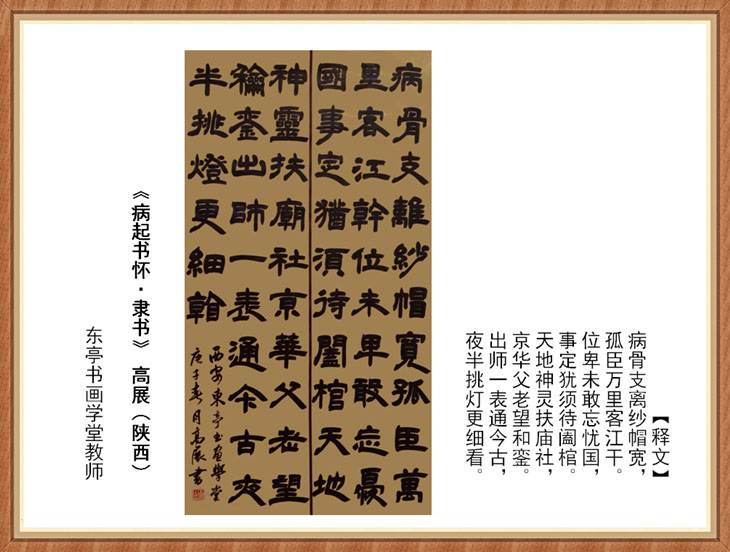 【释文】
病骨支离纱帽宽，
孤臣万里客江干。
位卑未敢忘忧国，
事定犹须待阖棺。
天地神灵扶庙社，
京华父老望和銮。
出师一表通今古，
夜半挑灯更细看。
病骨支離紗帽寬孤臣萬
里客江幹位未卑敢忘憂
國事定猶須待闔棺天地
神靈扶廟社京華父老望
龢鑾出師一表通今古夜
半挑燈更細看
西安東亭書畫學堂
庚子春月高展書
《病起书怀·隶书》 高展（陕西）
东亭书画学堂教师